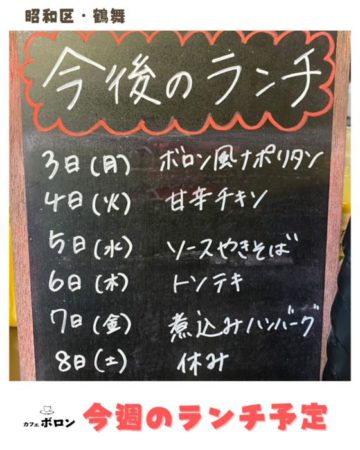 昭和区・鶴舞
今後のランチ
3日(月) ボロン風ナポリタン
4日(火) 甘辛チキン
5日(水) ソースやきそば
6日(木) トンテキ
7日(金) 煮込みハンバーグ
8日(土) 休み
カフェ ボロン 今週のランチ予定